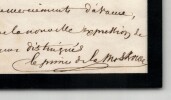 remerciements d'avance,
la nouvelle expression de
distingués
le prince de la Moskowa